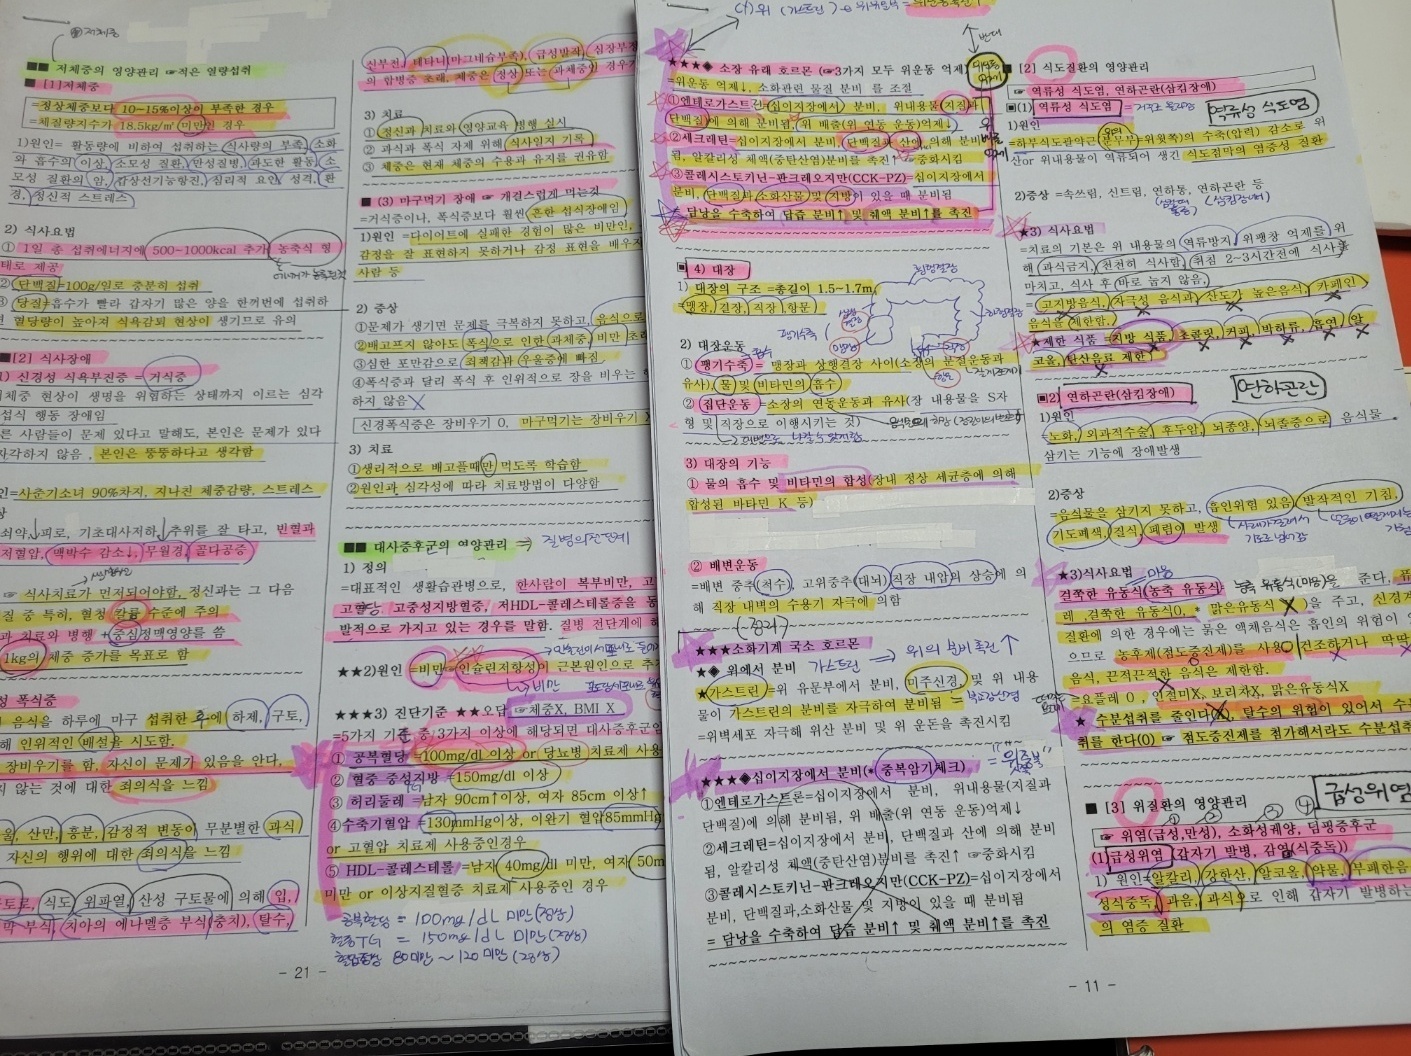 저체중
■■ 저체중의 영양관리 ☞적은 열량섭취
■ [1]저체중
=정상체중보다 10~15%이상이 부족한 경우
=체질량지수가 18.5kg/㎡ 미만인 경우
1)원인= 활동량에 비하여 섭취하는 식사량의 부족, 소화
와 흡수의 이상, 소모성 질환, 만성질병, 과도한 활동, 소
모성 질환의 암, 갑상선기능항진, 심리적 요인, 성격, 환
경, 정신적 스트레스
2) 식사요법
① 1일 총 섭취에너지에 500~1000kcal 추가, 농축식 형
태로 제공
② 단백질=100g/일로 충분히 섭취
③ 당질=흡수가 빨라 갑자기 많은 양을 한꺼번에 섭취하
면 혈당량이 높아져 식욕감퇴 현상이 생기므로 유의
■[2] 식사장애
1) 신경성 식욕부진증 = 거식증
체중 현상이 생명을 위협하는 상태까지 이르는 심각
섭식 행동 장애임
른 사람들이 문제 있다고 말해도, 본인은 문제가 있다
각하지 않음. 본인은 뚱뚱하다고 생각함
인=사춘기소녀 90%차지, 지나친 체중감량, 스트레스
상
쇠약, 피로, 기초대사저하, 추위를 잘 타고, 빈혈과
저혈압, 맥박수 감소↓, 무월경, 골다공증
☞ 식사치료가 먼저되어야함, 정신과는 그 다음
질 중 특히, 혈청 칼륨 수준에 주의
과 치료와 병행 +중심정맥영양를 씀
1kg의 체중 증가를 목표로 함
성 폭식증
음식을 하루에 마구 섭취한 후에 하제, 구토,
해 인위적인 배설을 시도함.
장비우기를 함, 자신이 문제가 있음을 안다,
지 않는 것에 대한 죄의식을 느낌
울, 산만, 흥분, 감정적 변동이 무분별한 과식
자신의 행위에 대한 죄의식을 느낌
토로, 식도, 위파열, 산성 구토물에 의해 입,
막 부식, 치아의 에나멜층 부식(충치), 탈수,
- 21 -
신부전, 테타니(마그네슘부족), 급성발작, 심장부정
의 합병증 초래, 체중은 정상 또는 과체중인 경우가
3) 치료
① 정신과 치료와 영양교육 병행 실시
② 과식과 폭식 자제 위해 식사일지 기록
③ 체중은 현재 체중의 수용과 유지를 권유함
■ (3) 마구먹기 장애 ☞ 개걸스럽게 먹는것
=거식증이나, 폭식증보다 훨씬 흔한 섭식장애임
1)원인 =다이어트에 실패한 경험이 많은 비만인,
감정을 잘 표현하지 못하거나 감정 표현을 배우지
사람 등
2) 증상
①문제가 생기면 문제를 극복하지 못하고, 음식으로
②배고프지 않아도 폭식으로 인한 과체중, 비만 초래
③심한 포만감으로 죄책감과 우울증에 빠짐.
④폭식증과 달리 폭식 후 인위적으로 장을 비우는
하지 않음 X
신경폭식증은 장비우기 O, 마구먹기는 장비우기 X
3) 치료
①생리적으로 배고플때만 먹도록 학습함
②원인과 심각성에 따라 치료방법이 다양함
■■ 대사증후군의 영양관리 ⇒ 질병의전단계
1) 정의
=대표적인 생활습관병으로, 한사람이 복부비만, 고
고혈당, 고중성지방혈증, 저HDL-콜레스테롤증을 동
발적으로 가지고 있는 경우를 말함. 질병 전단계에
★★2)원인 =비만☞인슐린저항성이 근본원인으로 추
비만
★★★3) 진단기준 ★★오답 ☞체중X, BMI X
=5가지 기준 중 3가지 이상에 해당되면 대사증후군임
① 공복혈당 =100mg/dl 이상 or 당뇨병 치료제 사용
② 혈중 중성지방 =150mg/dl 이상
TG
③ 허리둘레=남자 90cm↑이상, 여자 85cm 이상↑
④수축기혈압 =130mmHg이상, 이완기 혈압85mmHg
or 고혈압 치료제 사용중인경우
⑤ HDL-콜레스테롤=남자 40mg/dl 미만, 여자 50m
미만 or 이상지질혈증 치료제 사용중인 경우
공복혈당 = 100mg/dL 미만(정상)
혈중TG = 150mg/dL 미만(정상)
80미만 ~ 120미만 (정상)
반대
★★★◈ 소장 유래 호르몬 (☞3가지 모두 위운동 억제)
=위운동 억제↓, 소화관련 물질 분비 를 조절
①엔테로가스트론=십이지장에서 분비, 위내용물(지질과
단백질)에 의해 분비됨, 위 배출(위 연동 운동)억제↓
②세크레틴=십이지장에서 분비, 단백질과 산에 의해 분비
됨, 알칼리성 체액(중탄산염)분비를 촉진↑ ☞중화시킴
③콜레시스토키닌-판크레오지만(CCK-PZ)=십이지장에서
분비, 단백질과 소화산물 및 지방이 있을 때 분비됨
= 담낭을 수축하여 담즙 분비↑ 및 췌액 분비↑를 촉진
▣ 4) 대장
1) 대장의 구조 =총길이 1.5~1.7m,
=맹장, 결장, 직장, 항문)
횡행결장
2) 대장운동
① 팽기수축 = 맹장과 상행결장 사이(소장의 분절운동과
유사), 물 및 비타민의 흡수
② 집단운동 =소장의 연동운동과 유사(장 내용물을 S자
형 및 직장으로 이행시키는 것)
3) 대장의 기능
① 물의 흡수 및 비타민의 합성(장내 정상 세균증에 의해
합성된 바타민 K 등)
② 배변운동
=배변 중추(척수), 고위중추(대뇌) 직장 내압의 상승에 의
해 직장 내벽의 수용기 자극에 의함
(정리)
★★★소화기계 국소 호르몬
★◈ 위에서 분비 가스트린 ⇒ 위의 분비촉진 ↑
★가스트린=위 유문부에서 분비, 미주신경, 및 위 내용
물이 가스트린의 분비를 자극하여 분비됨
=위벽세포 자극해 위산 분비 및 위 운돈을 촉진시킴
★★★◈십이지장에서 분비(* 중복암기체크)
①엔테로가스트론=십이지장에서 분비, 위내용물(지질과
단백질)에 의해 분비됨, 위 배출(위 연동 운동)억제↓
②세크레틴=십이지장에서 분비, 단백질과 산에 의해 분비
됨, 알칼리성 체액(중탄산염)분비를 촉진↑ ☞중화시킴
③콜레시스토키닌-판크레오지만(CCK-PZ)=십이지장에서
분비, 단백질과,소화산물 및 지방이 있을 때 분비됨
= 담낭을 수축하여 담즙 분비↑ 및 췌액 분비↑를 촉진
- 11 -
■ [2] 식도질환의 영양관리
☞ 역류성 식도염, 연하곤란(삼킴장애)
■(1) 역류성 식도염
역류성 식도염
1)원인
=하부식도괄약근(분문부=위윗쪽)의 수축(압력) 감소로 위
산or 위내용물이 역류되어 생긴 식도점막의 염증성 질환
2)증상 =속쓰림, 신트림, 연하통, 연하곤란 등
★3) 식사요법
=치료의 기본은 위 내용물의 역류방지, 위팽창 억제를 위
해 과식금지, 천천히 식사함, 취침 2~3시간전에 식사를
마치고, 식사 후 바로 눕지 않음,
=고지방음식, 자극성 음식과 산도가 높은음식, 카페인
음식을 제한함.
★제한 식품 =지방 식품, 초콜릿, 커피, 박하류, 흡연, 알
코올, 탄산음료 제한
■2) 연하곤란(삼킴장애)
연하곤란
1)원인
=노화, 외과적수술, 후두암, 뇌종양, 뇌졸증으로 음식물
삼키는 기능에 장애발생
2)증상
=음식물을 삼키지 못하고, 흡인위험 있음, 발작적인 기침,
기도폐색, 질식, 폐렴이 발생
★3)식사요법
걸쭉한 유동식(농축 유동식) 을 준다, 퓨
레, 걸쭉한 유동식O, * 맑은유동식 X 을 주고, 신경계
질환에 의한 경우에는 묽은 액체음식은 흡인의 위험이 있
으므로 농후제(점도증진제)를 사용O, 건조하거나 딱딱
음식, 끈적끈적한 음식은 제한함.
=요플레 O , 인절미X, 보리차X, 맑은유동식X
★ 수분섭취를 줄인다X, 탈수의 위험이 있어서 수분
취를 한다(O) ☞ 점도증진제를 첨가해서라도 수분섭취
■ [3] 위질환의 영양관리
급성위염
☞ 위염(급성,만성), 소화성궤양, 덤핑증후군
(1)급성위염 (갑자기 발병, 감염(식중독))
1) 원인=알칼리, 강한산, 알코올, 약물, 부패한음
성식중독, 과음, 과식으로 인해 갑자기 발병하는
의 염증 질환